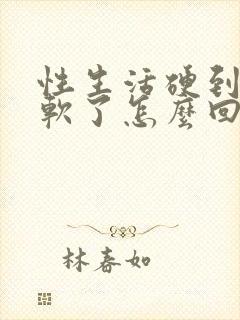 性生活硬到
軟了怎麼回
林春如